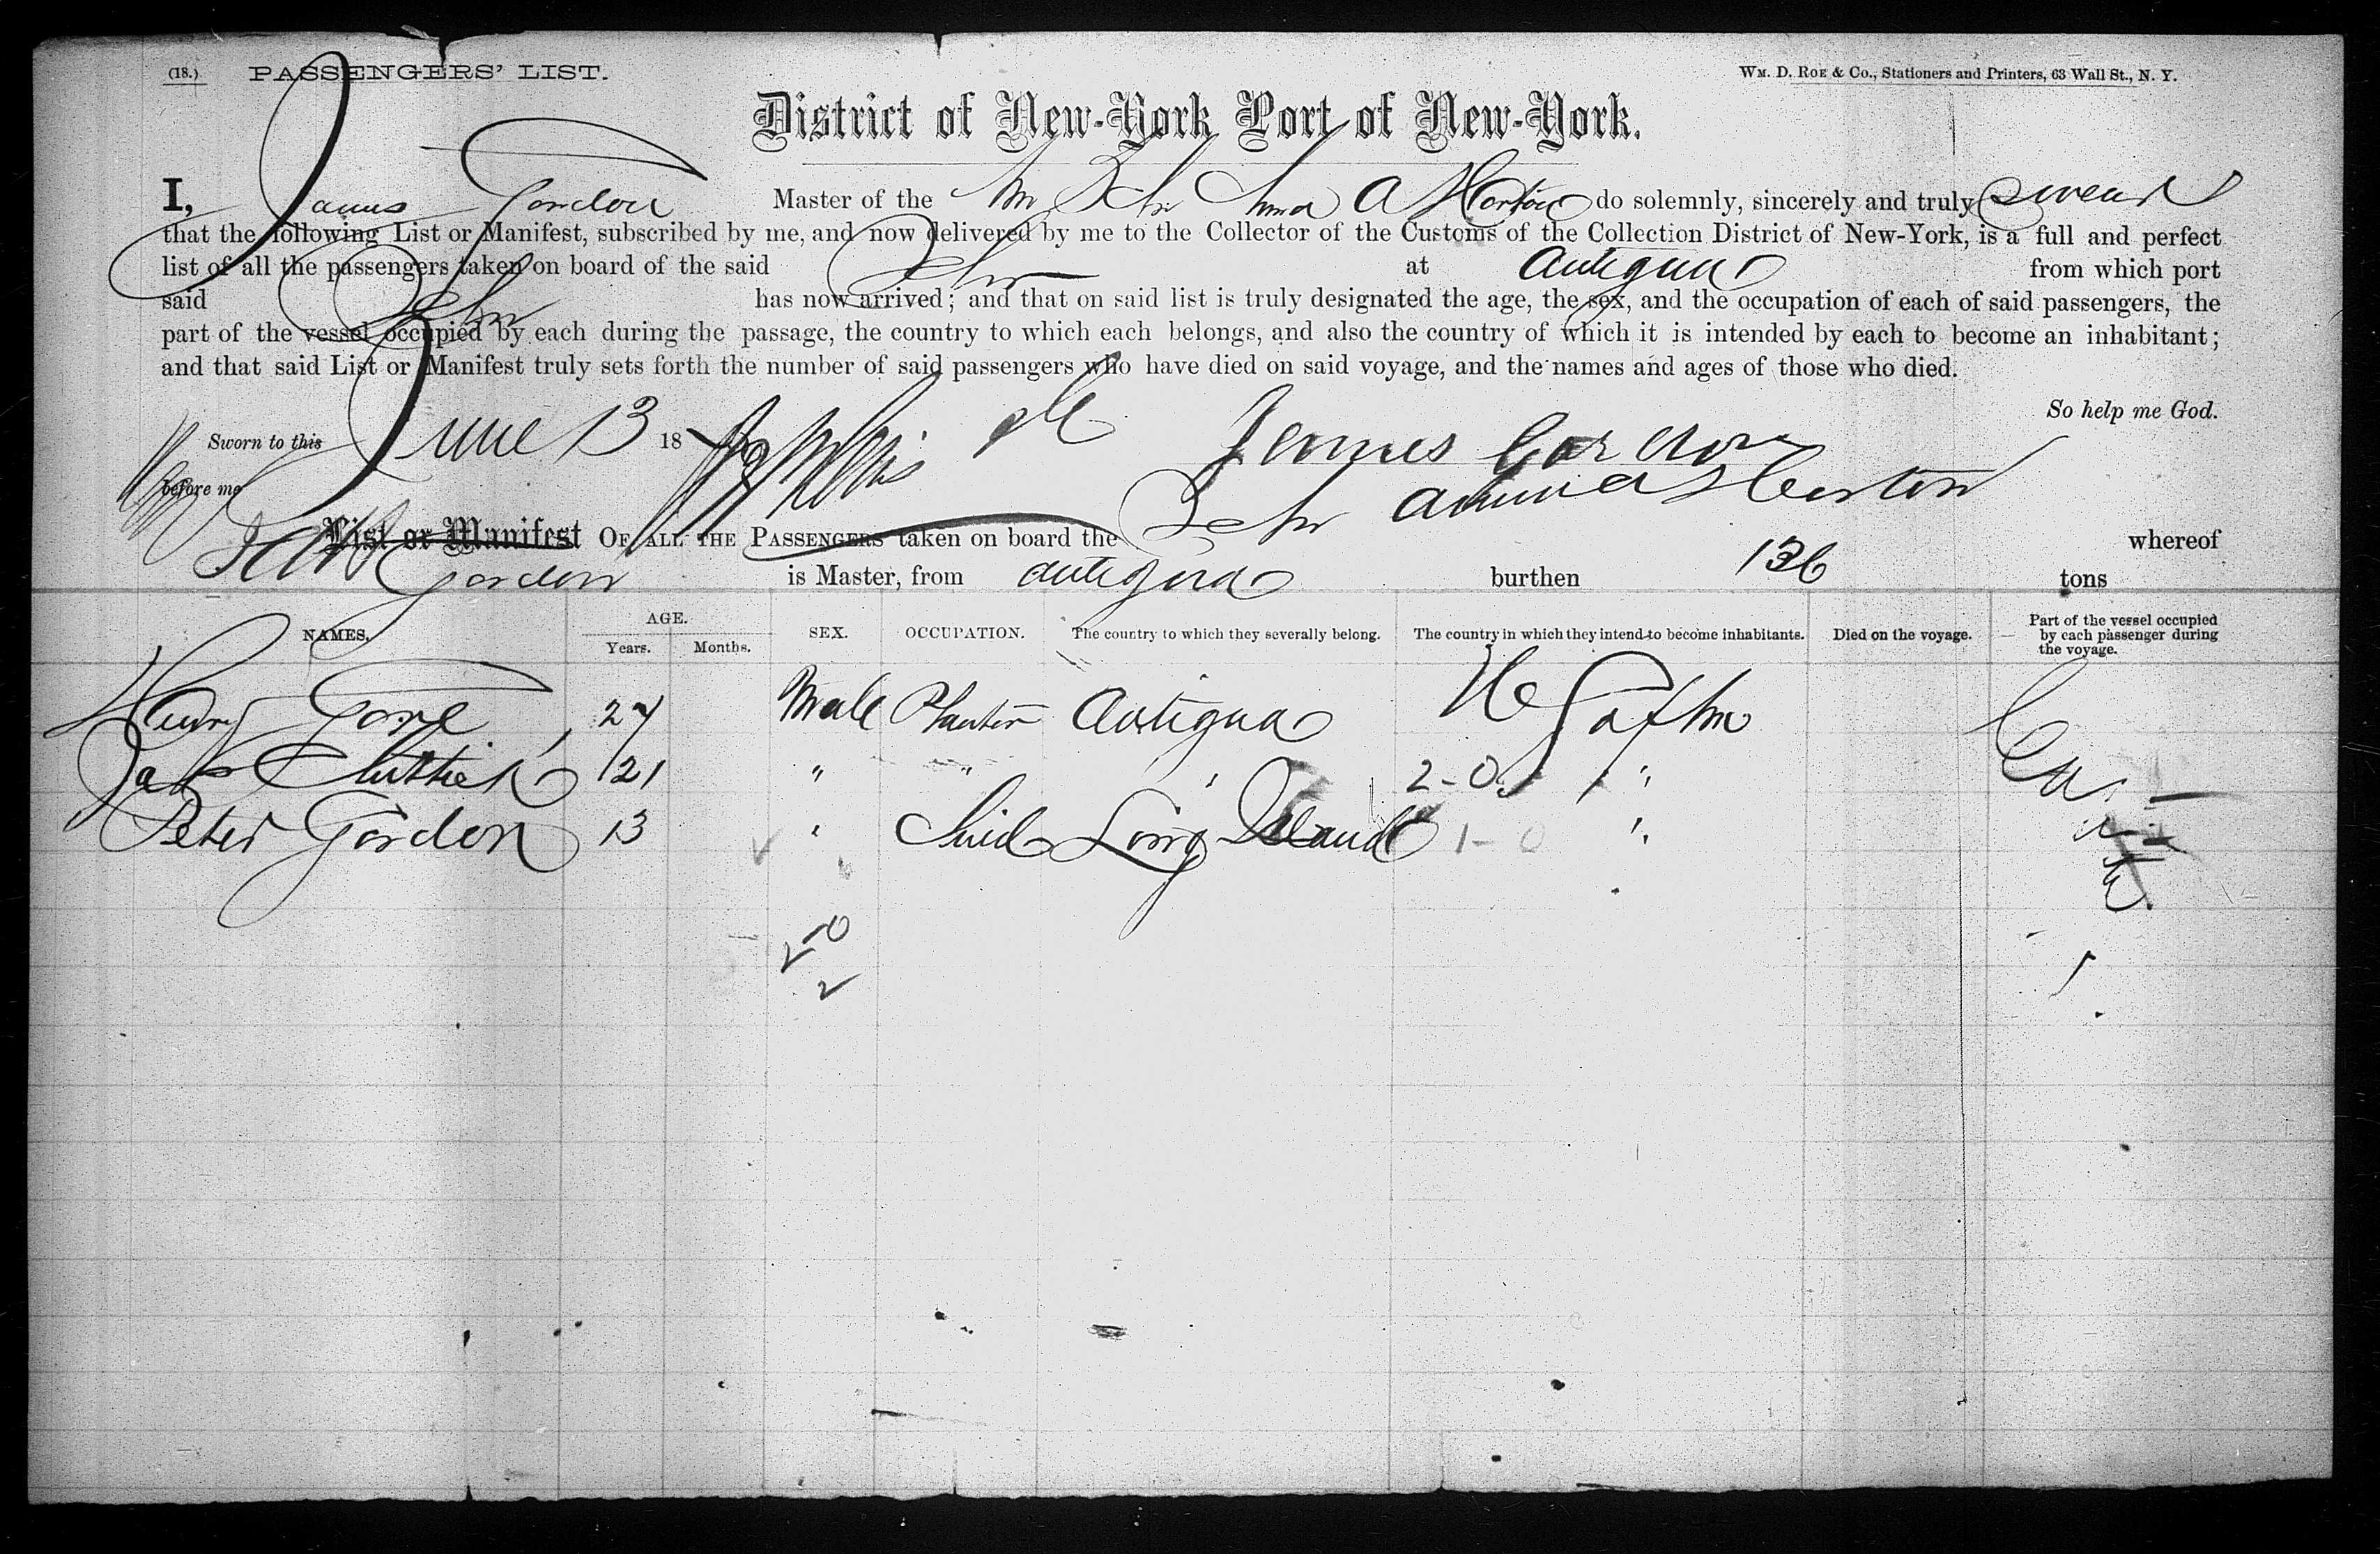 (18.) PASSENGERS' LIST. WM. D. ROE & Co., Stationers and Printers, 63 Wall St., N. Y.
District of New-York Port of New-York.
I, James Gordon Master of the Schr Anna A Horton do solemnly, sincerely and truly swear
that the following List or Manifest, subscribed by me, and now delivered by me to the Collector of the Customs of the Collection District of New-York, is a full and perfect
list of all the passengers taken on board of the said Schr at Antigua from which port
said Schr has now arrived; and that on said list is truly designated the age, the sex, and the occupation of each of said passengers, the
part of the vessel occupied by each during the passage, the country to which each belongs, and also the country of which it is intended by each to become an inhabitant;
and that said List or Manifest truly sets forth the number of said passengers who have died on said voyage, and the names and ages of those who died.
So help me God.
Sworn to this June 13 18 James Gordon
before me
List or Manifest OF ALL THE PASSENGERS taken on board the Schr Anna A Horton whereof
Gordon is Master, from Antigua burthen 136 tons
NAMES. AGE. SEX. OCCUPATION. The country to which they severally belong. The country in which they intend to become inhabitants. Died on the voyage. Part of the vessel occupied by each passenger during the voyage.
Years. Months.
Henry Gore 27 Male Planter Antigua
Jas 21 " " 2-0 "
Peter Gordon 13 " Long Island 1-0 "
2-0
2